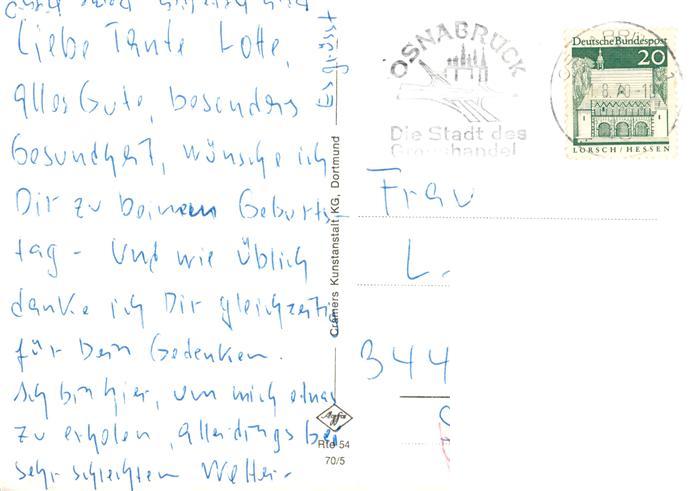 Liebe Tante Lotte,
alles Gute, besonders
Gesundheit, wünsche ich
Dir zu Deinem Geburts-
tag - und wie üblich
danke ich Dir gleichzeitig
für Dein Gedenken.
Ich bin hier, um mich etwas
zu erholen, allerdings bei
sehr schlechtem Wetter.
Es grüsst
Cramers Kunstanstalt KG, Dortmund
Agfa
Rtd 54
70/5
OSNABRÜCK
Die Stadt des
Grosshandel
Deutsche Bundespost
20
LORSCH/HESSEN
Frau
L.
344